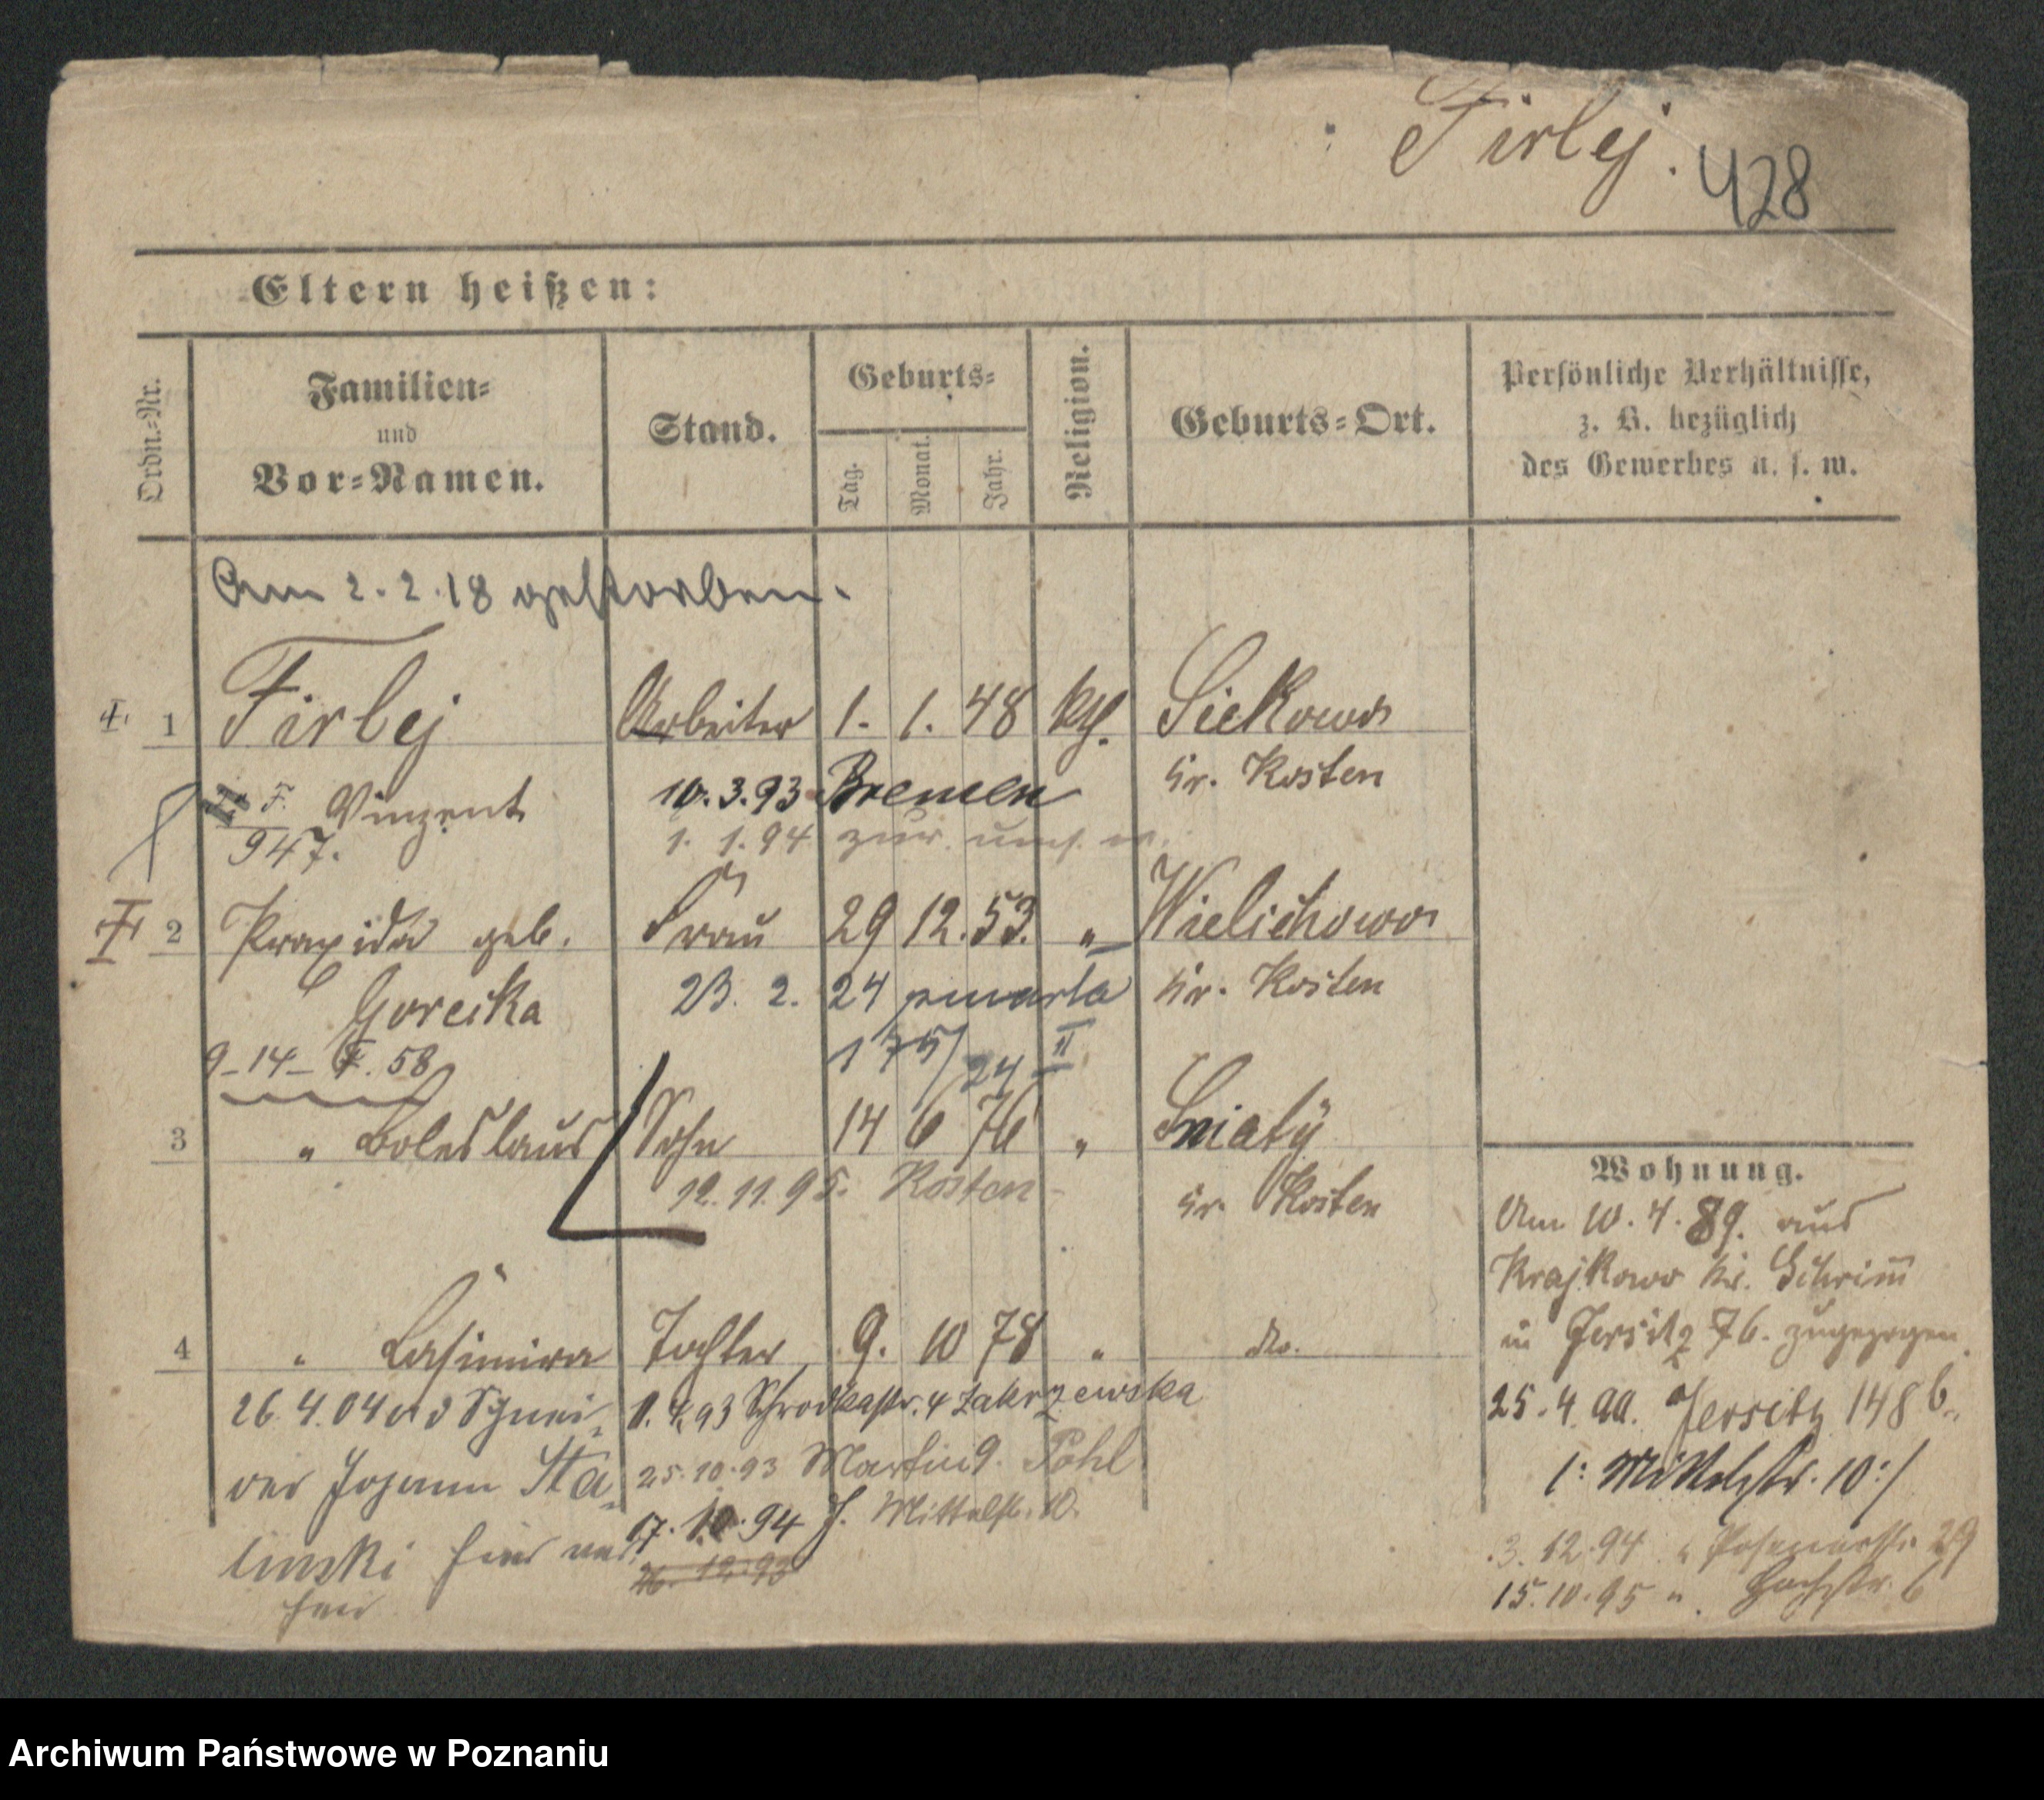 Firlej.
428
Eltern heißen:
Ordn.-Nr.
Familien-
und
Vor-Namen.
Stand.
Geburts-
Tag.
Monat.
Jahr.
Religion.
Geburts-Ort.
Persönliche Verhältnisse,
z. B. bezüglich
des Gewerbes u. s. w.
Am 2.2.18 gestorben.
1 Firlej Arbeiter 1. 1. 48 kth. Siekowo
Kr. Kosten
F. Vinzent 10.3.93 Bremen
947. 1. 1. 94 zur.
2 Praxida geb. Frau 29 12. 53. " Wielichowo
Gorecka 23. 2. 24 zmarła Kr. Kosten
175/24 II
9-14- F. 58
3 " Boleslaus Sohn 14 6 76 " Sniaty
12.11.95. Kosten Kr. Kosten
4 " Casimira Tochter 9. 10 78 " do.
26.4.04 1.4.93 Schrodkastr. 4 Zakrzewska
Johann Sta- 25.10.93 Martin 9. Pohl
linski 17.10.94 J. Mittelstr. 10.
26.12.93
Wohnung.
Am 10.4.89. aus
Krajkowo Kr. Schrimm
in Jersitz 76. zugezogen.
25.4.90. Jersitz 148b.
/: Mittelstr. 10:/
3.12.94 " Posenerstr. 29
15.10.95 " 6
Archiwum Państwowe w Poznaniu